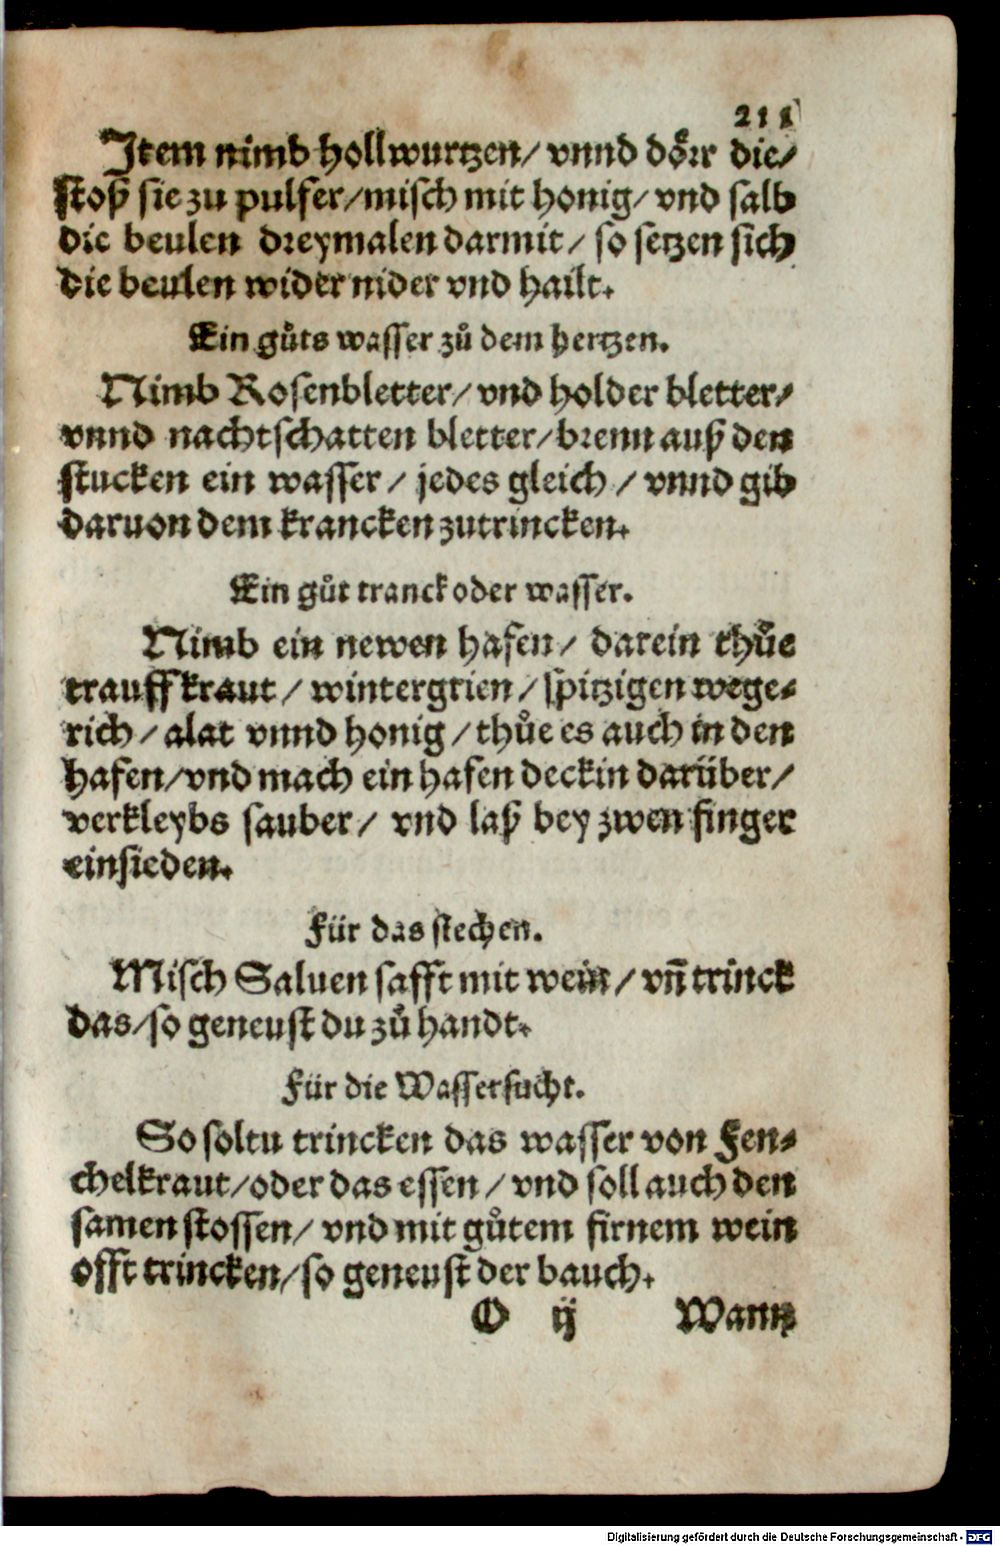 211
Item nimb hollwurtzen/ vnnd doͤrr die/
stoß sie zu pulfer/misch mit honig/ vnd salb
die beulen dreymalen darmit/ so setzen sich
die beulen wider nider vnd hailt.
Ein guͦts wasser zuͦ dem hertzen.
Nimb Rosenbletter/ vnd holder bletter/
vnnd nachtschatten bletter/brenn auß den
stucken ein wasser/ jedes gleich/ vnnd gib
daruon dem krancken zutrincken.
Ein guͦt tranck oder wasser.
Nimb ein newen hafen/ darein thuͦe
trauffkraut/ wintergrien/ spitzigen wege⸗
rich/ alat vnnd honig/ thuͦe es auch in den
hafen/vnd mach ein hafen deckin darüber/
verkleybs sauber/ vnd laß bey zwen finger
einsieden.
Für das stechen.
Misch Saluen safft mit wein/ vñ trinck
das/so geneust du zuͦ handt.
Für die Wassersucht.
So soltu trincken das wasser von Fen⸗
chelkraut/oder das essen/ vnd soll auch den
samen stossen/ vnd mit guͦtem firnem wein
offt trincken/so geneust der bauch.
O ij Wann
Digitalisierung gefördert durch die Deutsche Forschungsgemeinschaft - DFG